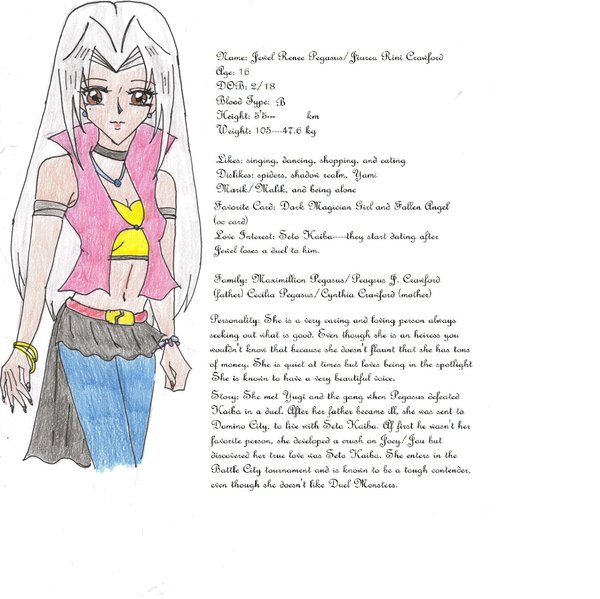 Name: Jewel Renee Pegasus/Jiureu Rini Crawford
Age: 16
DOB: 2/18
Blood Type: B
Height: 5'5--- km
Weight: 105----47.6 kg
Likes: singing, dancing, shopping, and eating
Dislikes: spiders, shadow realm, Yami
Marik/Malik, and being alone
Favorite Card: Dark Magician Girl and Fallen Angel
(oc card)
Love Interest: Seto Kaiba----they start dating after
Jewel loses a duel to him.
Family: Maximillion Pegasus/Peagsus J. Crawford
(father) Cecilia Pegasus/Cynthia Crawford (mother)
Personality: She is a very caring and loving person always
seeking out what is good. Even though she is an heiress you
wouldn't know that because she doesn't flaunt that she has tons
of money. She is quiet at times but loves being in the spotlight
She is known to have a very beautiful voice.
Story: She met Yugi and the gang when Pegasus defeated
Kaiba in a duel. After her father became ill, she was sent to
Domino City, to live with Seto Kaiba. Af first he wasn't her
favorite person, she developed a crush on Joey/Jou but
discovered her true love was Seto Kaiba. She enters in the
Battle City tournament and is known to be a tough contender,
even though she doesn't like Duel Monsters.